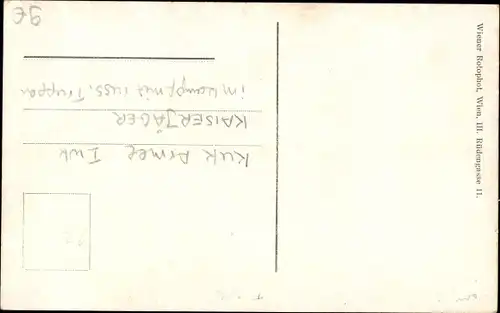 KuK Armee I.WK
KAISERJÄGER
im Kampf mit russ. Truppen
9€
Wiener Rotophot, Wien, III. Rüdengasse 11.